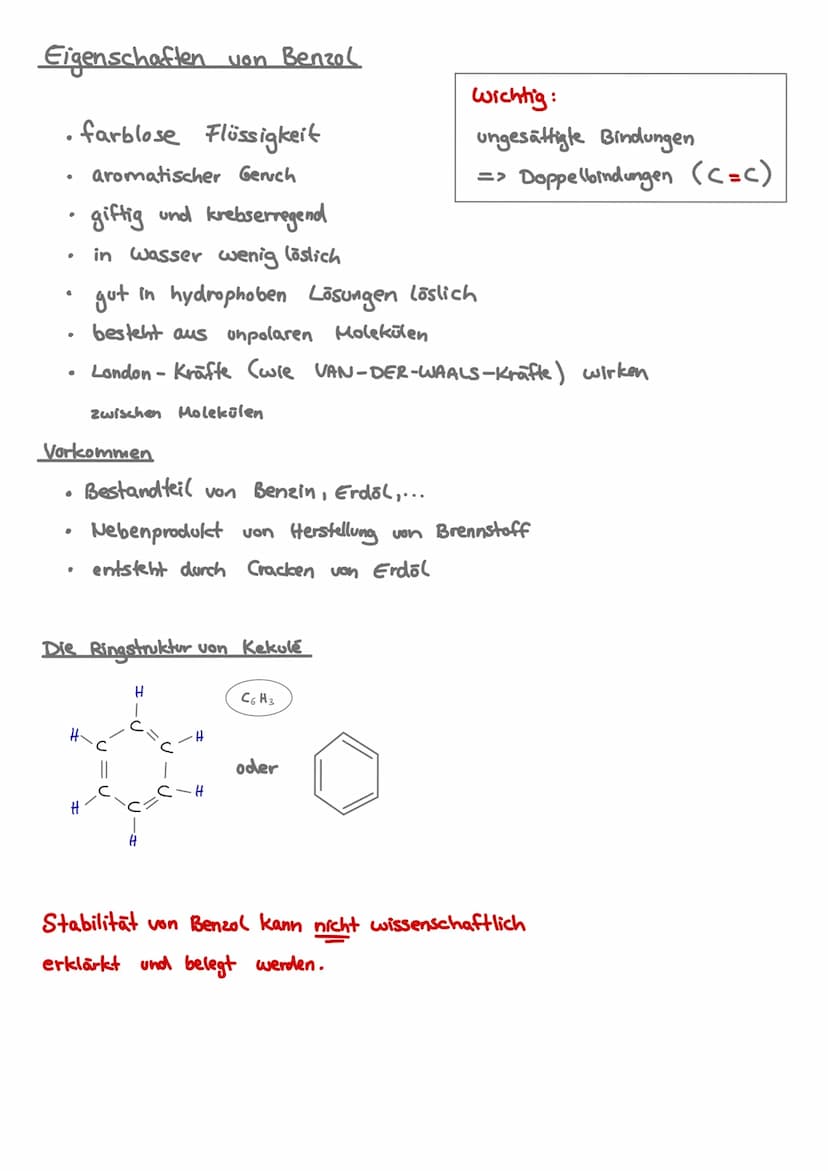 Eigenschaften von Benzol
Wichtig:
ungesättigte Bindungen
=> Doppelbindungen (C=C)
• farblose Flüssigkeit
• aromatischer Geruch
• giftig und krebserregend
• in Wasser wenig löslich
• gut in hydrophoben Lösungen löslich
• besteht aus unpolaren Molekülen
• London-Kräfte (wie VAN-DER-WAALS-Kräfte) wirken
zwischen Molekülen
Vorkommen
• Bestandteil von Benzin, Erdöl,...
• Nebenprodukt von Herstellung von Brennstoff
• entsteht durch Cracken von Erdöl
Die Ringstruktur von Kekulé
H
C₆H₃
C
H C C H
oder
H C C H
C
H
Stabilität von Benzol kann nicht wissenschaftlich
erklärkt und belegt werden.